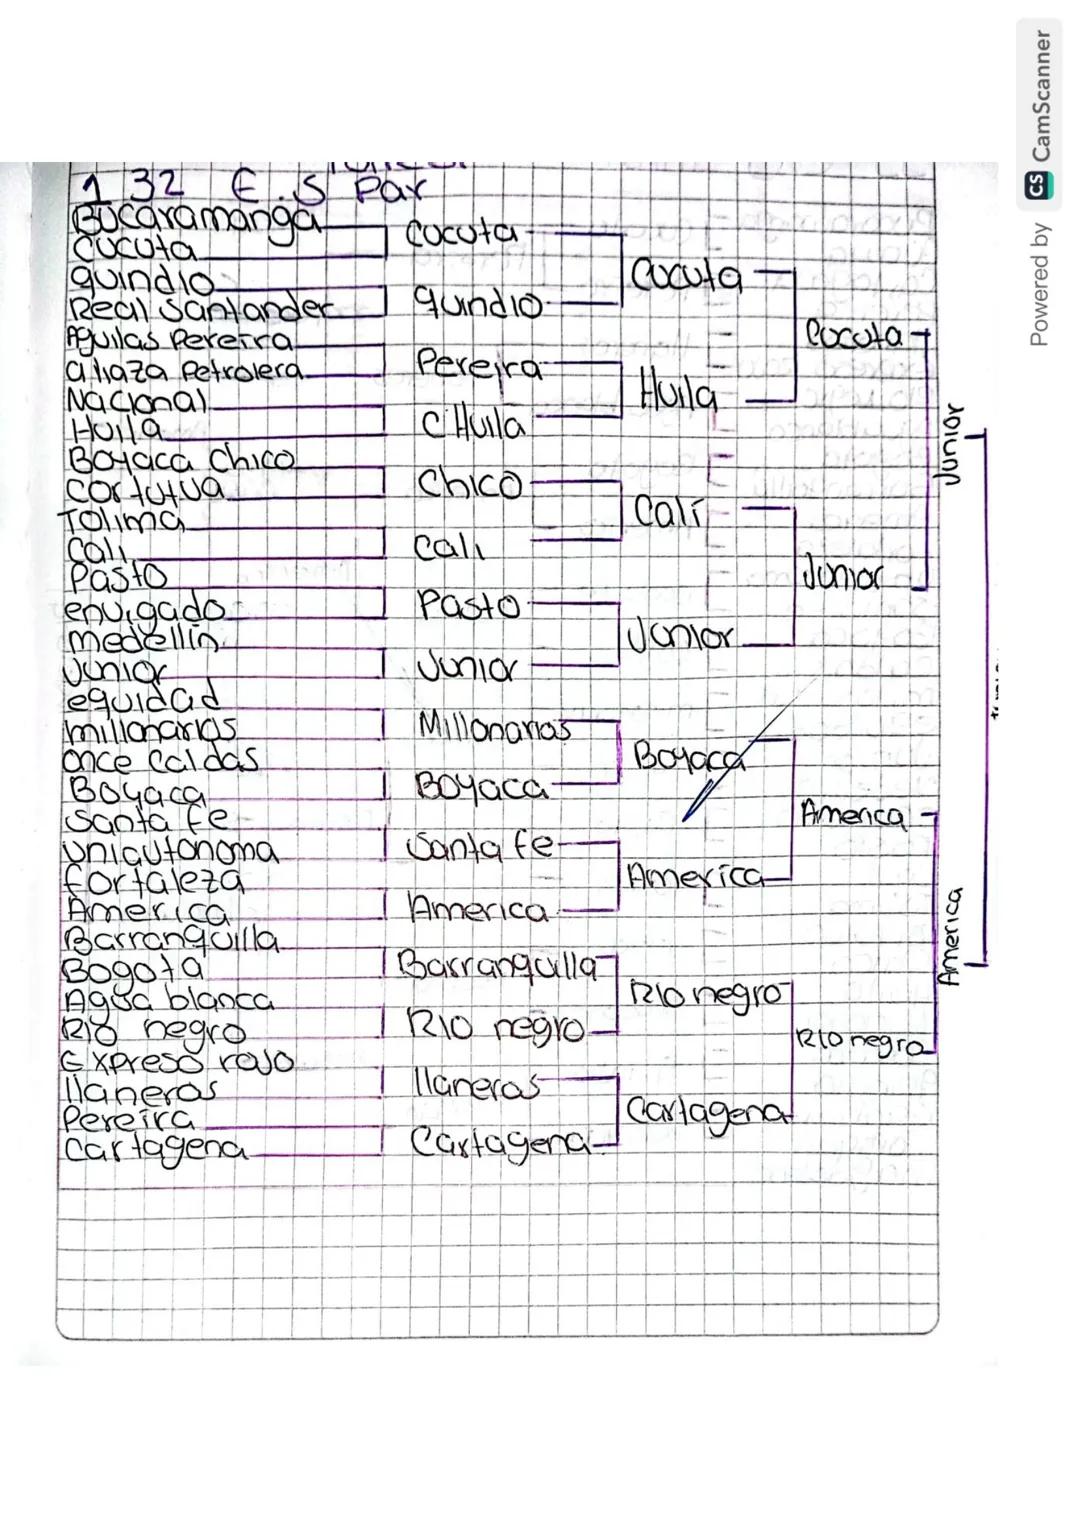 1 32 E.S Par
Bucaramanga
Cucuta
quindio
Real Santander
Aguilas Pereira
aliaza Petrolera
Nacional
Huila
Boyaca Chico
Cortutua
Tolima
Cali
Pasto
envigado
medellin
Junior
equidad
millonarios
Once Caldas
Boyaca
Santa fe
uniautonoma
fortaleza
America
Barranquilla
Bogota
Agua blanca
Rio negro
Expreso rojo
llaneros
Pereira
Cartagena
Cucuta
quindio
Pereira
C Huila
Chico
Cali
Pasto
Junior
Millonarios
Boyaca
Santa fe
America
Barranquilla
Rio negro
llaneros
Cartagena
Cucuta
Huila
Cali
Junior
Boyaca
America
Rio negro
Cartagena
Cucuta
Junior
America
Rio negro
Junior
America
Powered by CS CamScanner